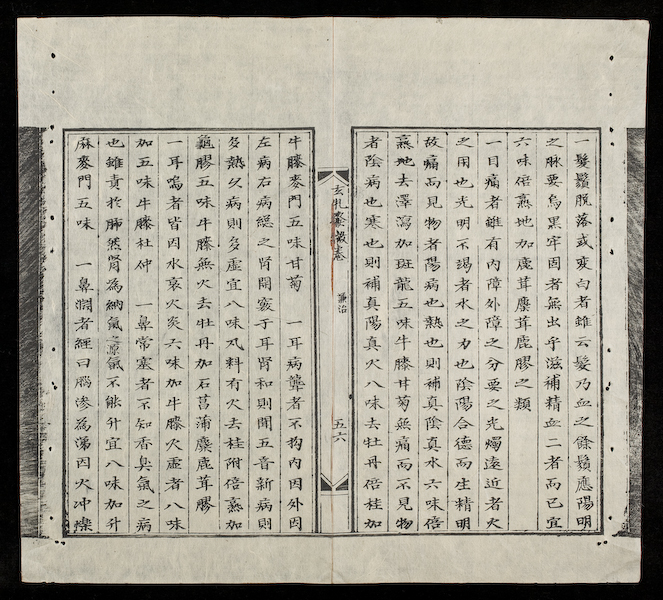 一髮鬚脫落或変白者雖云髮乃血之餘鬚應陽明
之脉要烏黒牢固者無出乎滋補精血二者而已宜
六味倍熟地加鹿茸麋茸鹿膠之類
一目痛者雖有内障外障之分要之光燭遠近者火
之用也光明不竭者水之力也陰陽合德而生精明
故痛而見物者陽病也熱也則補真陰真水六味倍
熟地去澤瀉加斑龍五味牛膝甘菊無痛而不見物
者陰病也寒也則補真陽真火八味去牡丹倍桂加
玄牝 卷 兼治 五六
牛膝麥門五味甘菊 一耳病聾者不拘内因外因
左病右病總之腎開竅于耳腎和則聞五音新病則
多熱久病則多虛宜八味丸料有火去桂附倍熟加
龜膠五味牛膝無火去牡丹加石菖蒲麋鹿茸膠
一耳鳴者皆因水衰火炎六味加牛膝火虛者八味
加五味牛膝杜仲 一鼻常塞者不知香臭氣之病
也雖責於肺然腎為納氣之原氣不能升宜八味加升
麻麥門五味 一鼻淵者經曰腦滲為涕因火冲爍